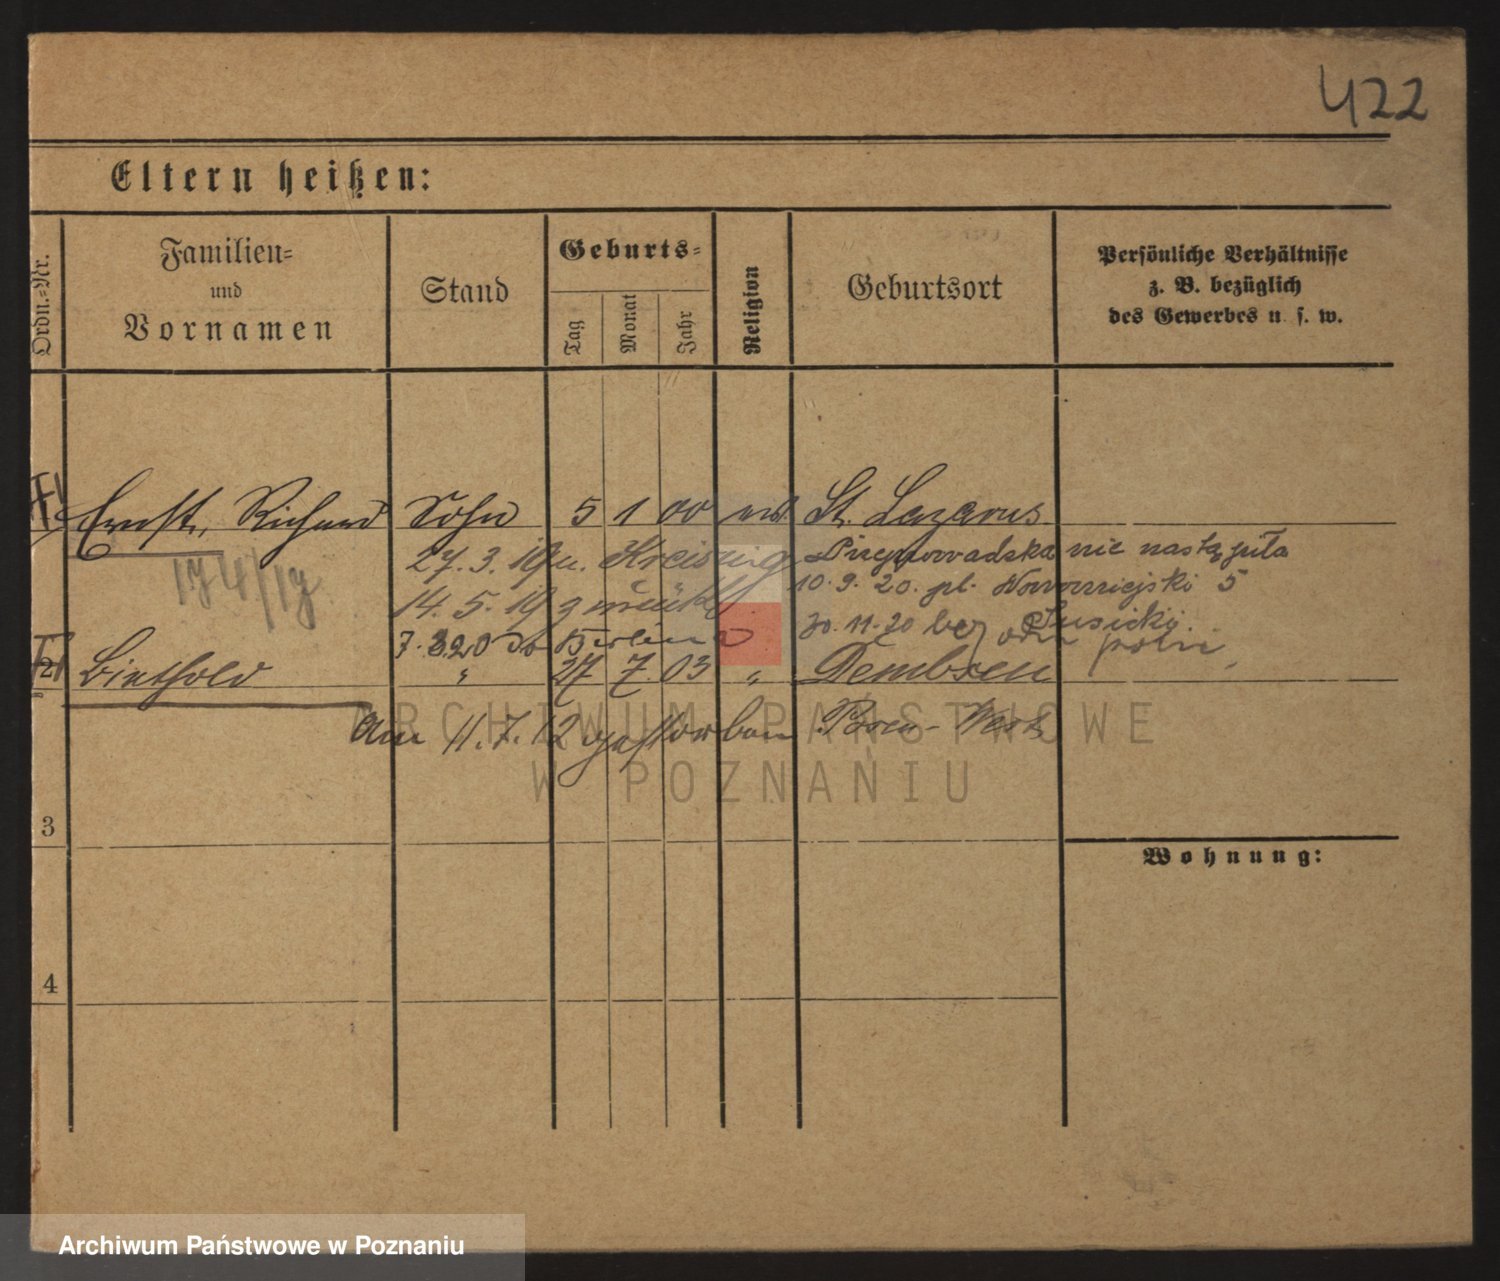 422
Eltern heißen:
Ordn.-Nr.
Familien- und Vornamen
Stand
Geburts-
Tag
Monat
Jahr
Religion
Geburtsort
Persönliche Verhältnisse
z. B. bezüglich
des Gewerbes u. s. w.
Ernst, Richard Sohn 5 1 00 St. Lazarus
27. 3. 19 n. Kreising Przeprowadzka nie nastąpiła
174/19
14. 5. 19 zurück 10. 9. 20. pl. Nowomiejski 5
30. 11. 20 bei Susicki.
7. 8. 20 Berlin
2 Berthold " 27 7. 03 " Dembsen
Am 11. 7. 12 gestorben Posen-West
ARCHIWUM PAŃSTWOWE
W POZNANIU
3
Wohnung:
4
Archiwum Państwowe w Poznaniu